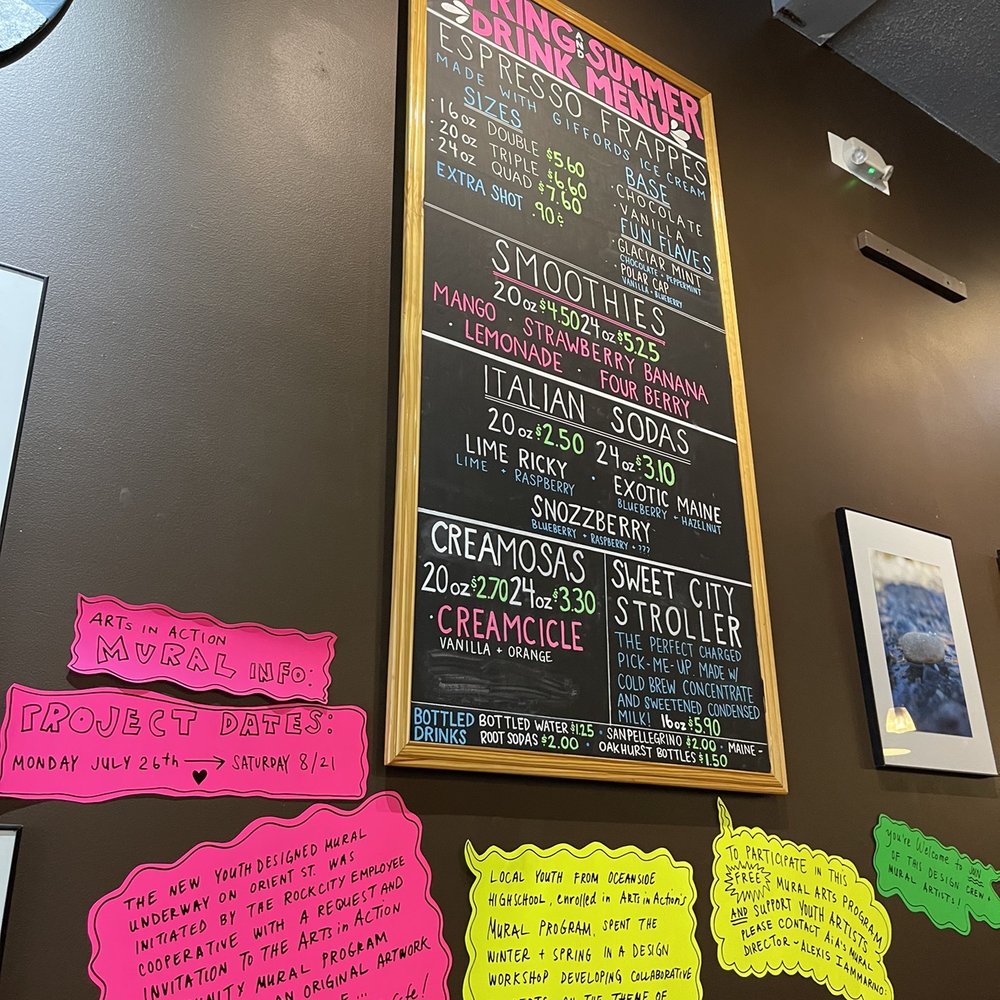 AND SUMMER
DRINK MENU
ESPRESSO FRAPPES
MADE WITH GIFFORDS ICE CREAM
SIZES
· 16 oz DOUBLE $5.60
· 20 oz TRIPLE $6.60
· 24 oz QUAD $7.60
EXTRA SHOT .90¢
BASE
· CHOCOLATE
· VANILLA
FUN FLAVES
· GLACIAR MINT
CHOCOLATE + PEPPERMINT
· POLAR CAP
VANILLA + BLUEBERRY
SMOOTHIES
20 oz $4.50 24 oz $5.25
MANGO · STRAWBERRY BANANA
· LEMONADE · FOUR BERRY
ITALIAN SODAS
20 oz $2.50 24 oz $3.10
LIME RICKY
LIME + RASPBERRY
· EXOTIC MAINE
BLUEBERRY + HAZELNUT
SNOZZBERRY
BLUEBERRY + RASPBERRY + ???
CREAMOSAS
20 oz $2.70 24 oz $3.30
· CREAMCICLE
VANILLA + ORANGE
SWEET CITY
STROLLER
THE PERFECT CHARGED
PICK-ME-UP. MADE W/
COLD BREW CONCENTRATE
AND SWEETENED CONDENSED
MILK! 16 oz $5.90
BOTTLED
DRINKS
BOTTLED WATER $1.25 · SAN PELLEGRINO $2.00 · MAINE -
ROOT SODAS $2.00 · OAKHURST BOTTLES $1.50
ARTS IN ACTION
MURAL INFO:
PROJECT DATES:
MONDAY JULY 26th → SATURDAY 8/21
THE NEW YOUTH DESIGNED MURAL
UNDERWAY ON ORIENT ST. WAS
INITIATED BY THE ROCK CITY EMPLOYEE
COOPERATIVE WITH A REQUEST AND
INVITATION TO THE ARTS IN ACTION
MURAL PROGRAM
AN ORIGINAL ARTWORK
LOCAL YOUTH FROM OCEANSIDE
HIGHSCHOOL, ENROLLED IN ARTS IN ACTION'S
MURAL PROGRAM, SPENT THE
WINTER + SPRING IN A DESIGN
WORKSHOP DEVELOPING COLLABORATIVE
ON THE THEME OF
TO PARTICIPATE IN THIS
FREE MURAL ARTS PROGRAM
AND SUPPORT YOUTH ARTISTS
PLEASE CONTACT AiA'S MURAL
DIRECTOR - ALEXIS IAMMARINO:
you're Welcome to JOIN
OF THIS DESIGN CREW +
MURAL ARTISTS!